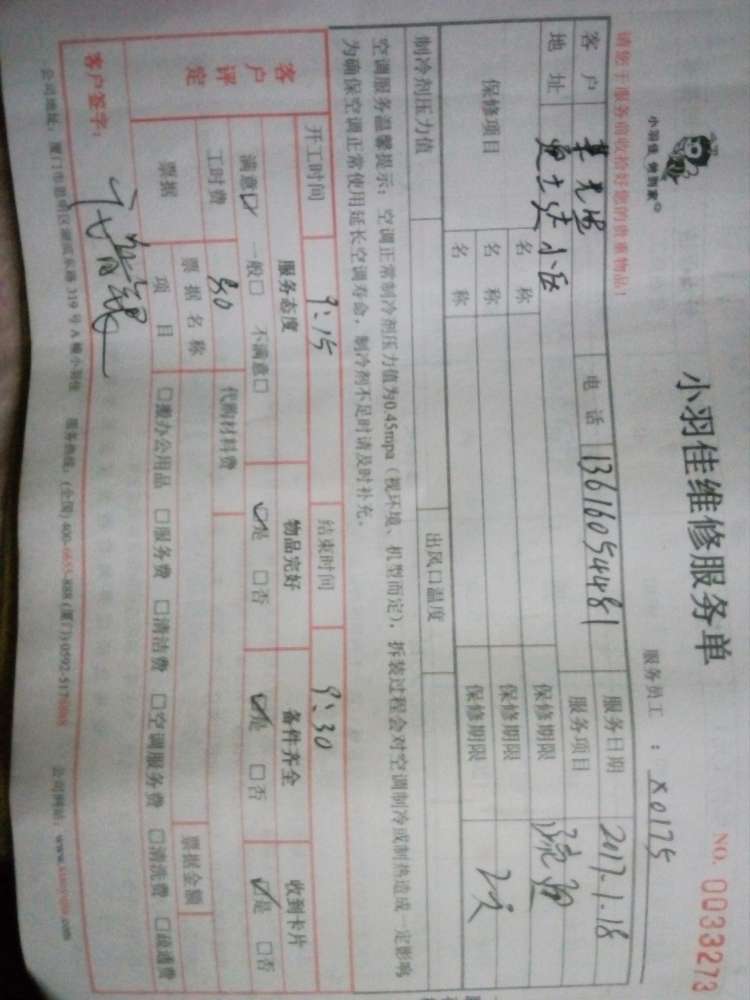 小羽佳维修服务单
NO. 0033273
小羽佳 做到家
服务员工：X0175
请您于服务前收拾好您的贵重物品！
客户 电话 13616054481 服务日期 2017.1.18
地址 小区 服务项目
保修项目 名称 保修期限
名称 保修期限
名称 保修期限
制冷剂压力值 出风口温度
空调服务温馨提示：空调正常制冷剂压力值为0.45mpa（视环境、机型而定），拆装过程会对空调制冷或制热造成一定影响
为确保空调正常使用延长空调寿命，制冷剂不足时请及时补充。
开工时间 9:15 结束时间 9:30
客户评定 服务态度 物品完好 备件齐全 收到卡片
满意☑ 一般□ 不满意□ ☑是 □否 ☑是 □否 ☑是 □否
工时费 30 代购材料费
票据 票据名称 票据金额
项目 □搬办公用品 □服务费 □清洁费 □空调服务费 □清洗费 □疏通费
客户签字：
公司地址：厦门市思明区湖滨东路319号A幢小羽佳 服务热线：(全国) 400-6655-888 (厦门) 0592-517 公司网站：www.